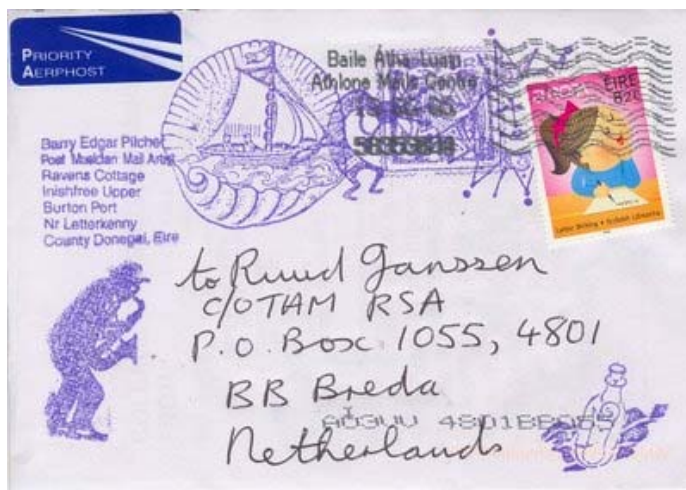 PRIORITY
AERPHOST
Baile Átha Luain
Athlone Mails Centre
ÉIRE
Letter Writing • Scríobh Litreacha
Barry Edgar Pilcher
Poet Musician Mail Artist
Ravens Cottage
Inishfree Upper
Burton Port
Nr Letterkenny
County Donegal, Eire
to Ruud Janssen
C/O TAM RSA
P.O. Box 1055, 4801
BB Breda
Netherlands